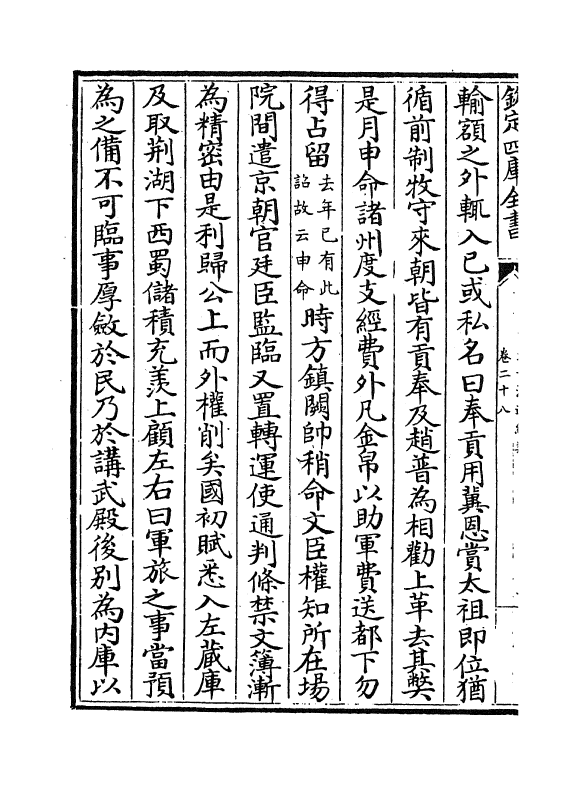 欽定四庫全書
卷二十八
輸額之外輒入已或私名曰奉貢用冀恩賞太祖即位猶
循前制牧守來朝皆有貢奉及趙普為相勸上革去其弊
是月申命諸州度支經費外凡金帛以助軍費送都下勿
得占留去年已有此詔故云申命時方鎮闕帥稍命文臣權知所在場
院間遣京朝官廷臣監臨又置轉運使通判條禁文簿漸
為精密由是利歸公上而外權削矣國初賦悉入左藏庫
及取荆湖下西蜀儲積充羡上顧左右曰軍旅之事當預
為之備不可臨事厚斂於民乃於講武殿後别為内庫以